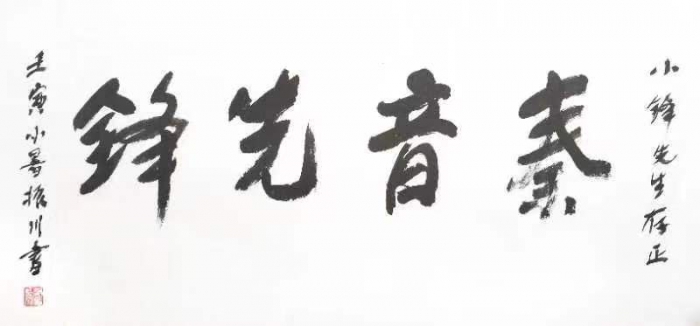 小锋先生存正
秦音先锋
壬寅小暑振川书